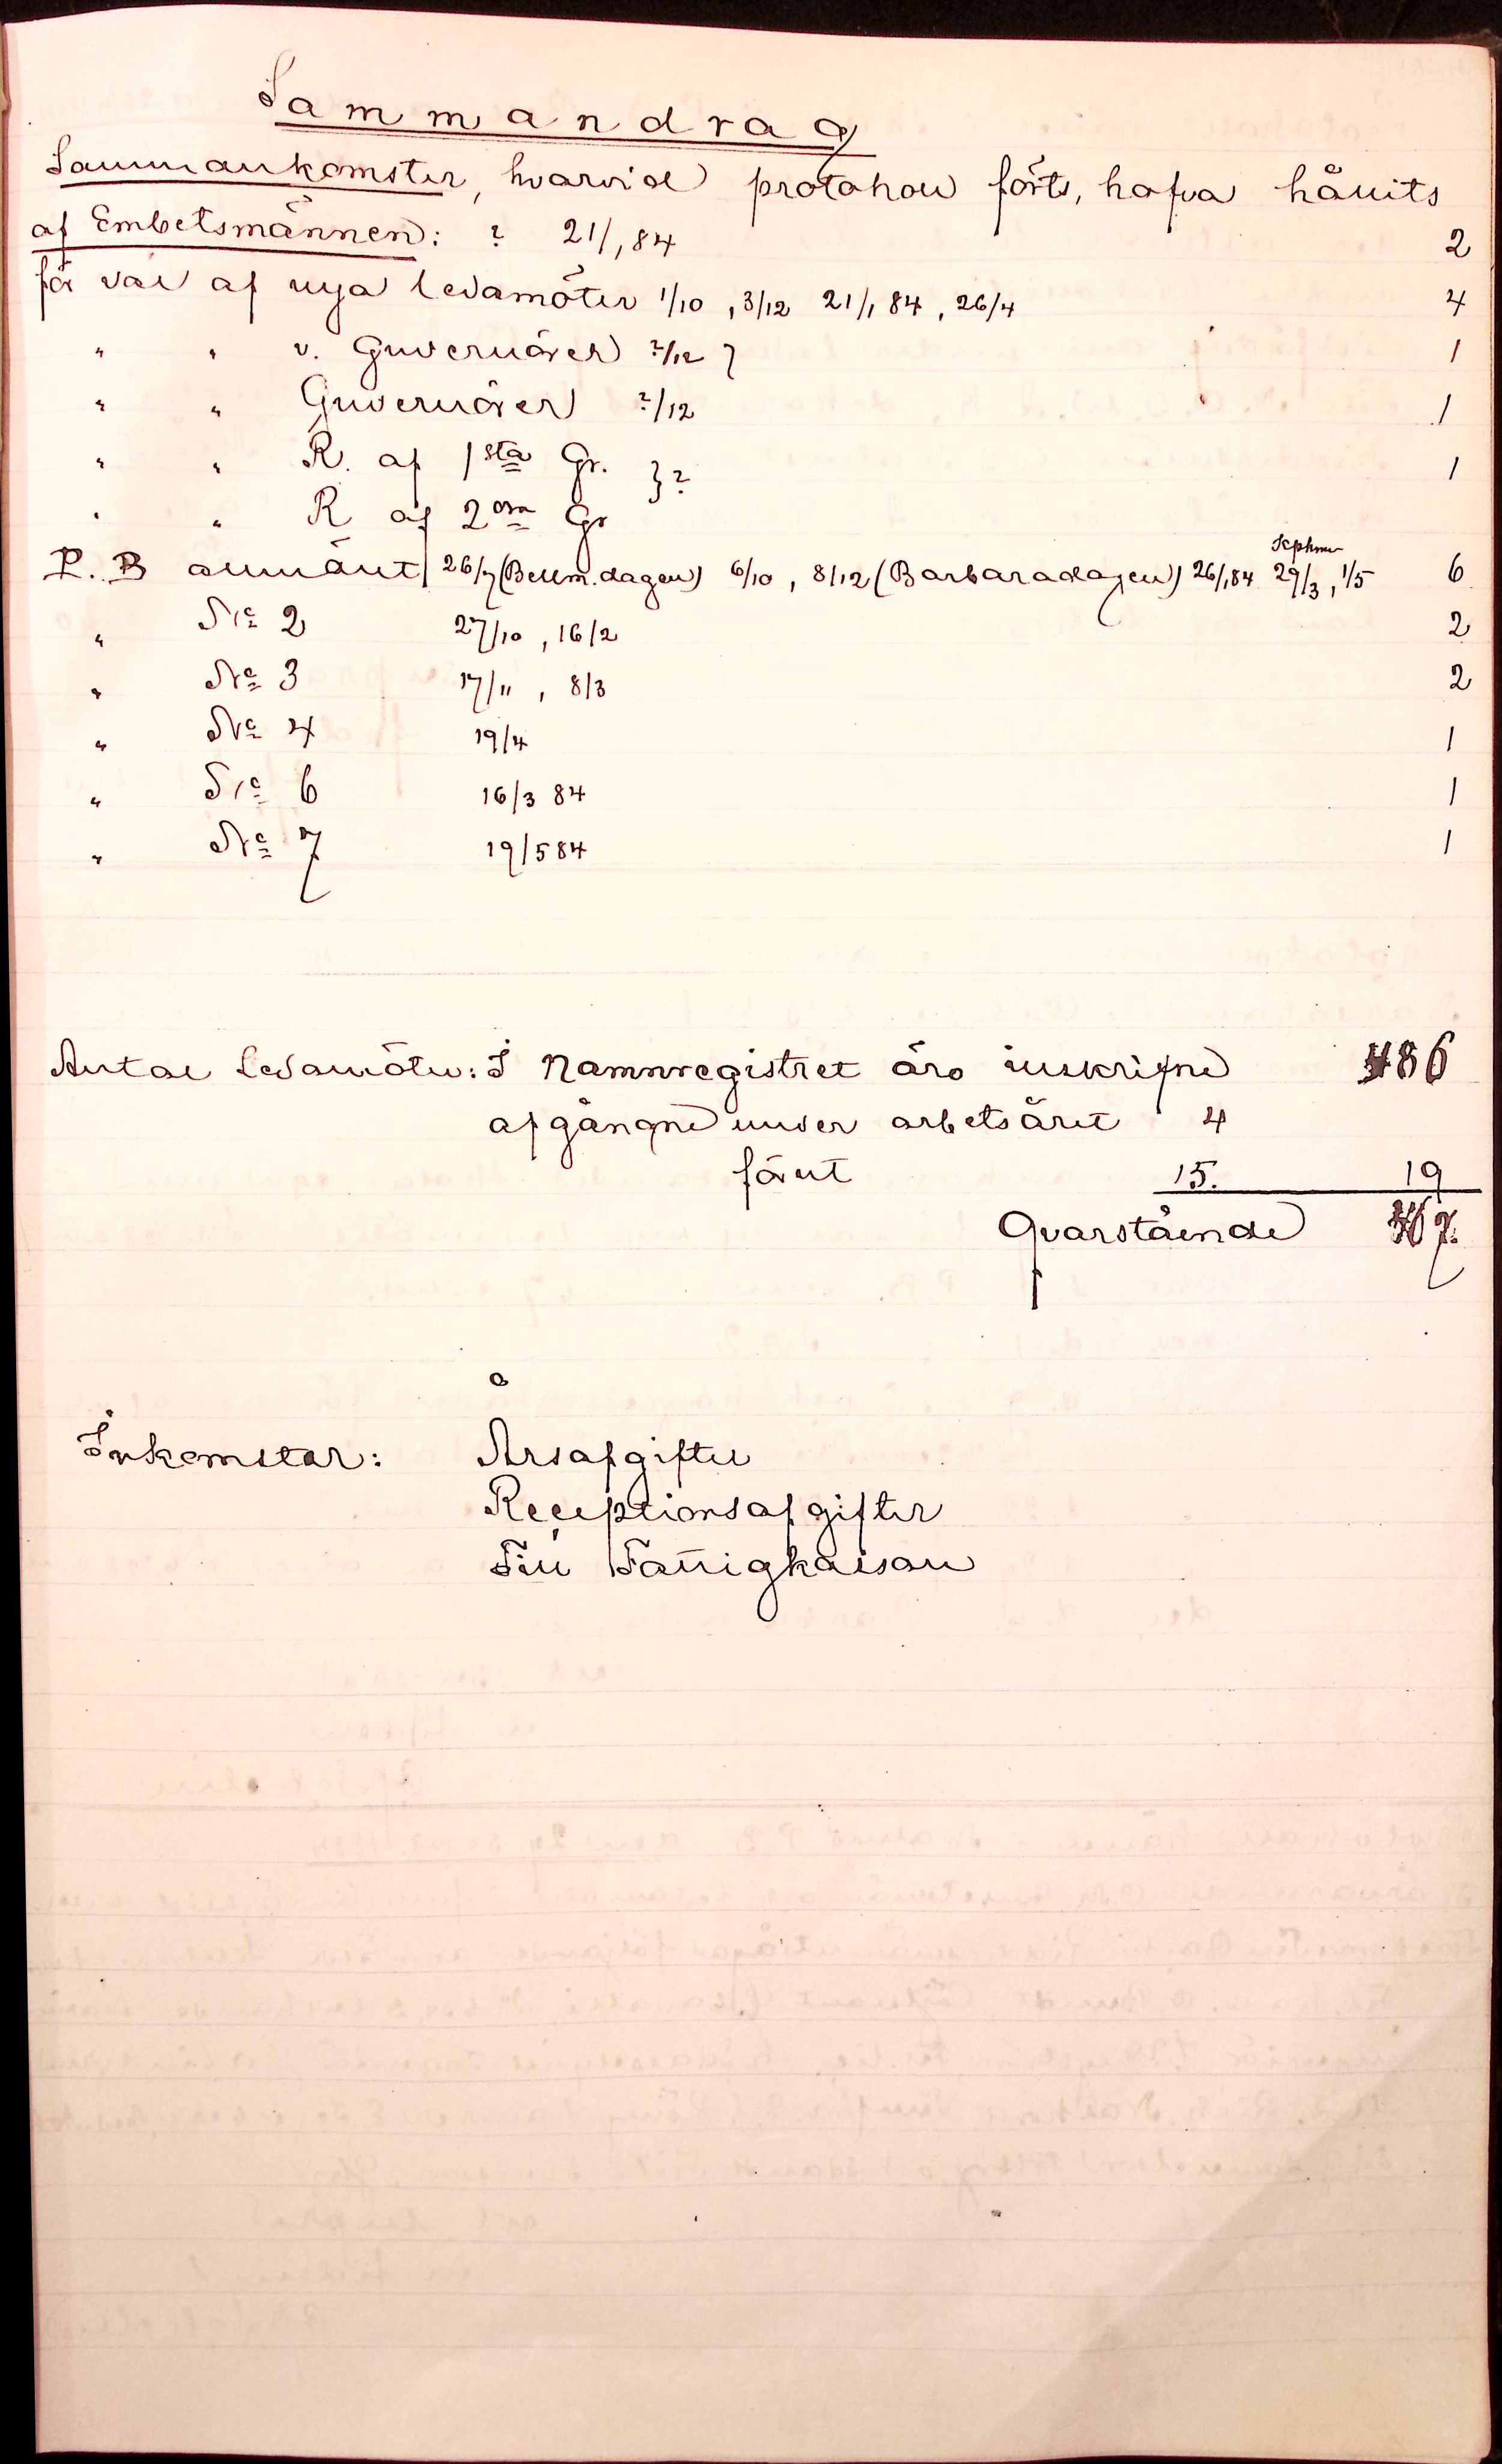 Sammandrag
Sammankomster, hvarvid protokoll förts, hafva hållits
af Embetsmännen: ? 21/1 84 2
för val af nya ledamöter 1/10, 3/12 21/1 84, 26/4 4
" " v. Guvernörer ?/12 } 1
" " Guvernörer ?/12 1
" " R. af 1sta Gr. } ? 1
" " R af 2dra Gr
P. B allmänt 26/7 (Bellm. dagen) 6/10, 8/12 (Barbaradagen) 26/1 84 29/3, 1/5 6
" No 2 27/10, 16/2 2
" No 3 17/11, 8/3 2
" No 4 19/4 1
" No 6 16/3 84 1
" No 7 19/5 84 1
Antal ledamöter: I Namnregistret äro inskrifne 86
afgångne under arbetsåret 4
förut 15. 19
Qvarstående 67.
Inkomster: Årsafgifter
Receptionsafgifter
Till Fattigkassan